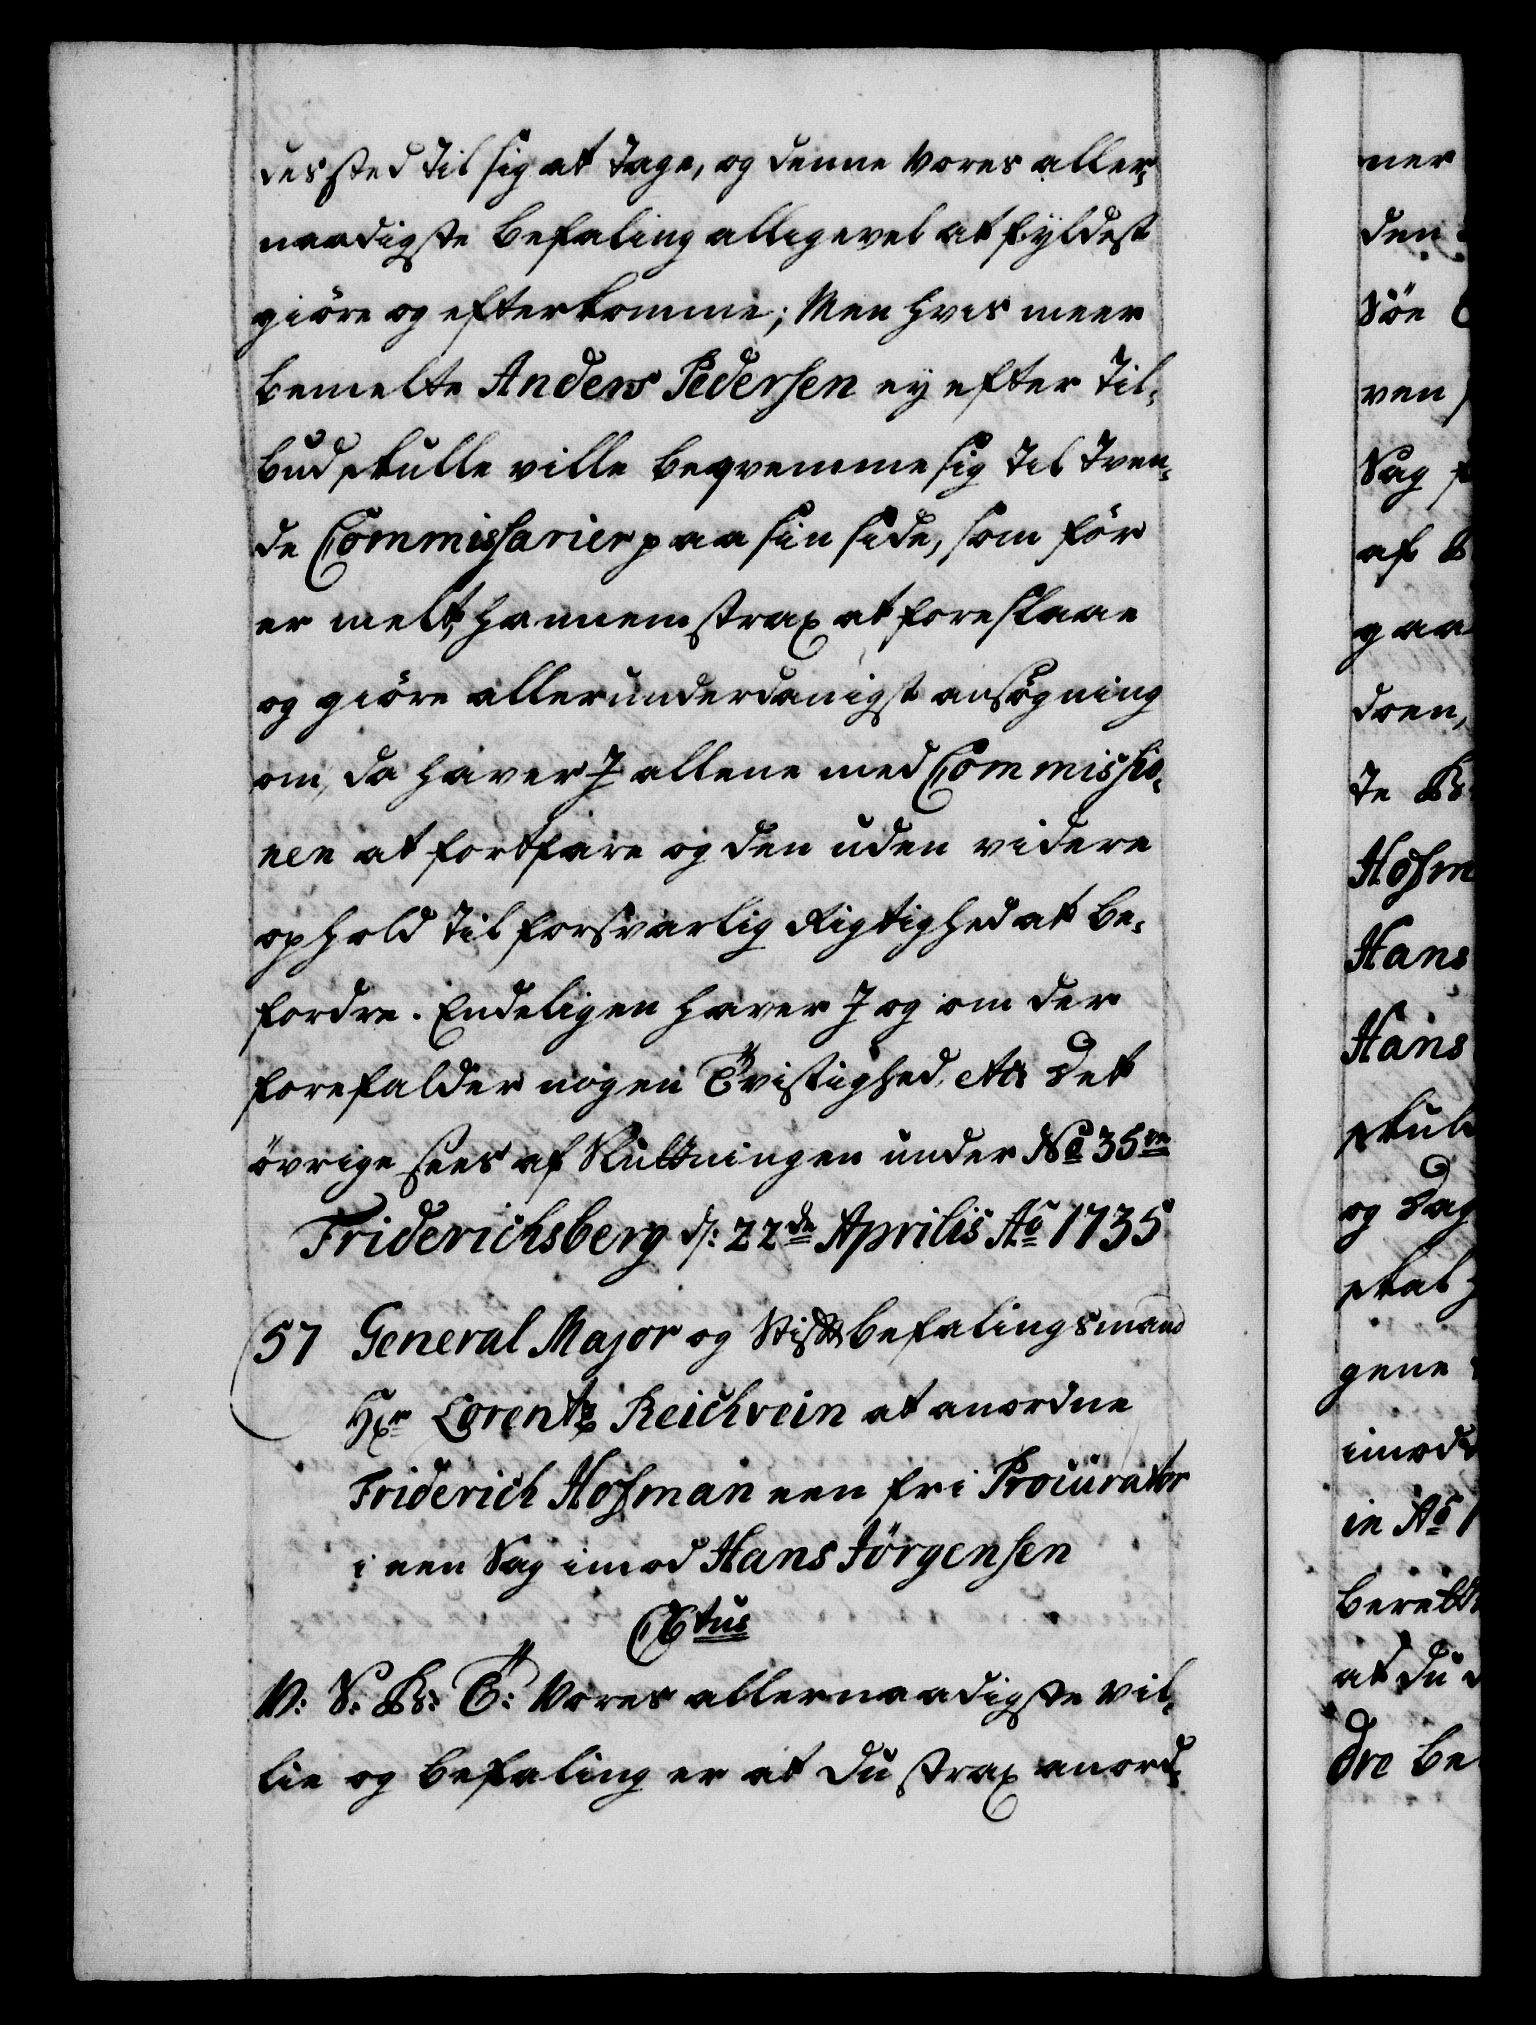 des sted til sig at tage, og denne Vores aller-
naadigste Befaling alligevel at fyldest
giöre og efterkomme; Men hvis meer
bemelte Anders Pedersen ey efter til-
bud skulle ville beqvemme sig til tven-
de Commissarier paa sin side, som för
er melt, hannem strax at foreslaae
og giöre allerunderdanigst ansögning
om, da haver I allene med Commissio-
nen at fortfare og den uden videre
ophold til forsvarlig Rigtighed at be-
fordre. Endeligen haver I og om der
forefalder nogen Tvistighed etc Det
övrige sees af Slutningen under No 35ve
Friderichsberg d: 22de Aprilis Ao 1735
57 General Major og Stiftbefalingsmand
Hr Lorentz Reichvein at anordne
Friderich Hofman een fri Procurator
i een Sag imod Hans Jörgensen
C6tus
V: S: B: T: Vores allernaadigste Vil-
lie og Befaling er at du strax anord-
ner
den
Söe
ven
Sag
af
gaa
doen,
te
Hofm
Hans
Hans
skul
og Dag
skal
gene
imod
in Ao 1
berett
at du
dre be